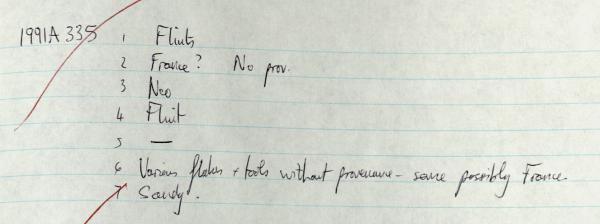 1991A 335 1 Flints
2 France? No prov.
3 Neo
4 Flint
5 —
6 Various flakes + tools without provenance - some possibly France.
7 Sandy.